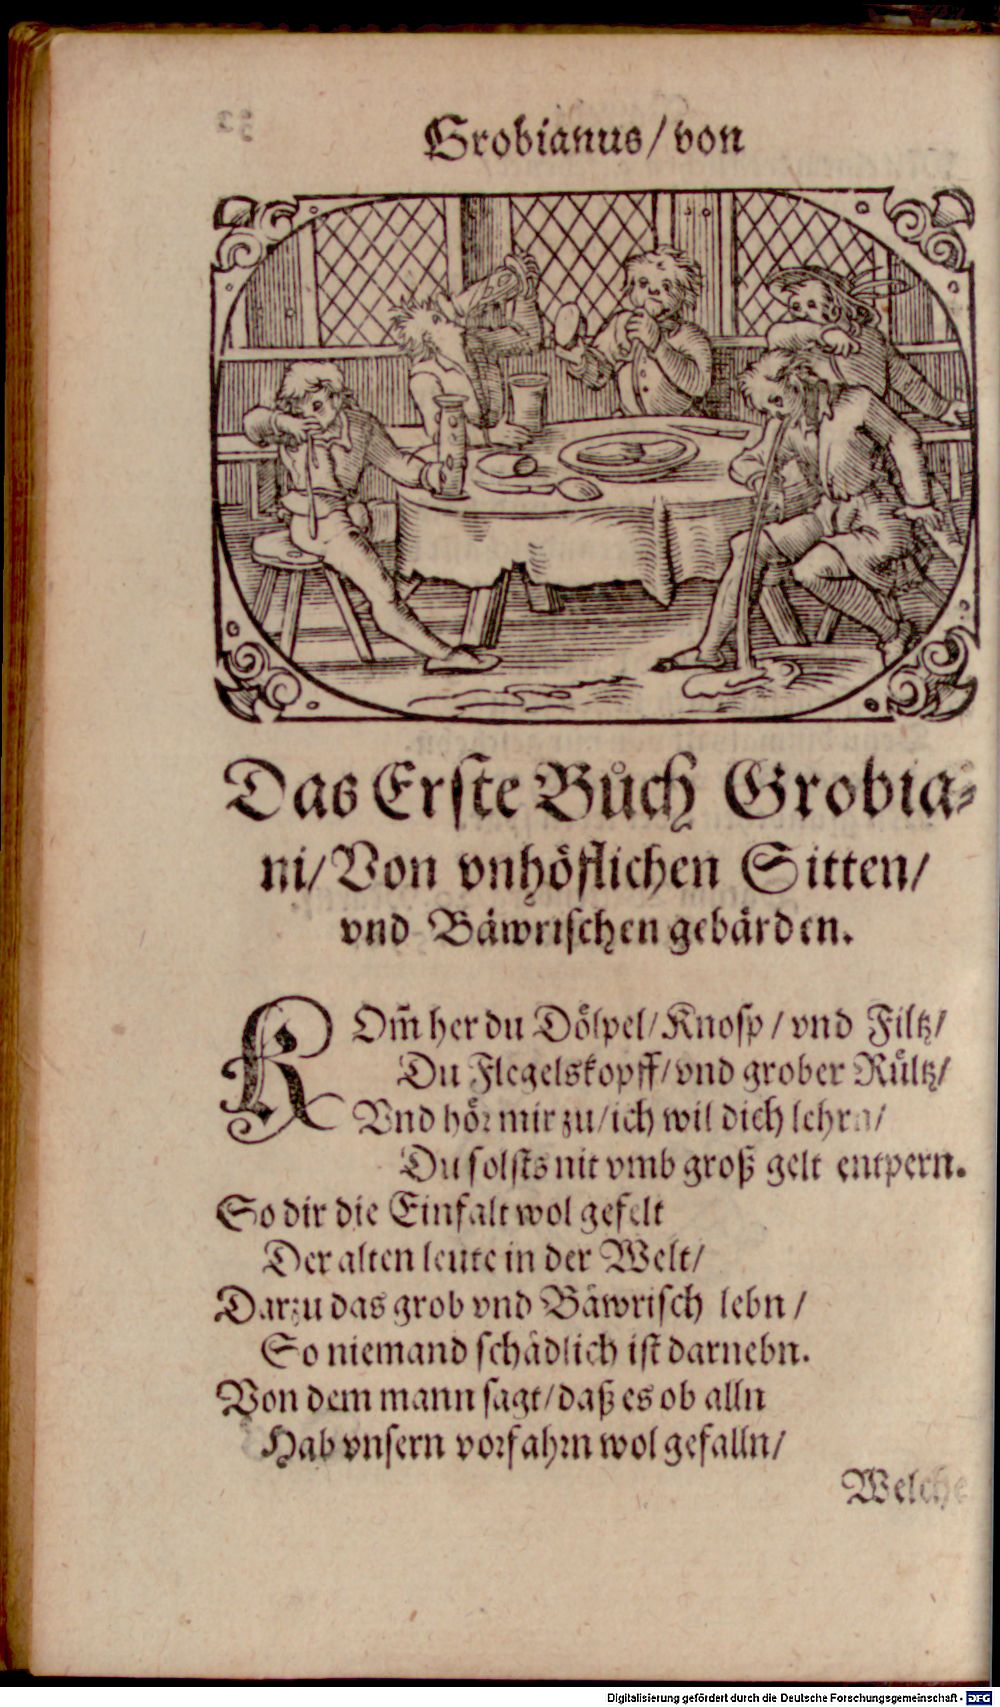 Grobianus/ von
Das Erste Bůch Grobia⸗
ni/ Von vnhöflichen Sitten/
vnd Bäwrischen gebärden.
KOm̃ her du Dölpel/ Knosp/ vnd Filtz/
Du Flegelskopff/ vnd grober Rültz/
Vnd hör mir zu/ ich wil dich lehrn/
Du solsts nit vmb groß gelt entpern.
So dir die Einfalt wol gefelt
Der alten leute in der Welt/
Darzu das grob vnd Bäwrisch lebn/
So niemand schädlich ist darnebn.
Von dem mann sagt/ daß es ob alln
Hab vnsern vorfahrn wol gefalln/
Welche
Digitalisierung gefördert durch die Deutsche Forschungsgemeinschaft - DFG